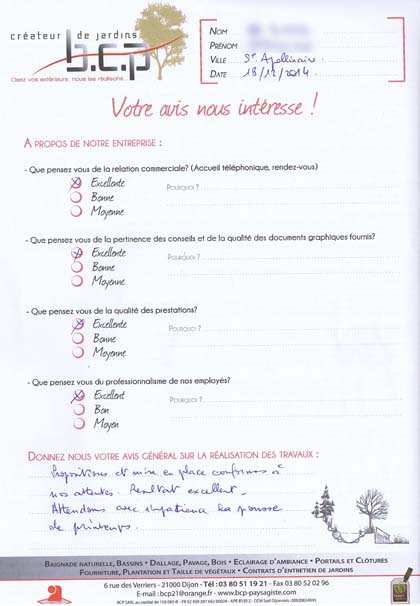 créateur de jardins
b.c.p
Osez vos extérieurs, nous les réalisons...
NOM
PRÉNOM
VILLE St Apollinaire
DATE 18/12/2014
Votre avis nous intéresse !
A PROPOS DE NOTRE ENTREPRISE :
- Que pensez vous de la relation commerciale? (Accueil téléphonique, rendez-vous)
Excellente
POURQUOI ?
Bonne
Moyenne
- Que pensez vous de la pertinence des conseils et de la qualité des documents graphiques fournis?
Excellente
POURQUOI ?
Bonne
Moyenne
- Que pensez vous de la qualité des prestations?
Excellente
POURQUOI ?
Bonne
Moyenne
- Que pensez vous du professionnalisme de nos employés?
Excellent
POURQUOI ?
Bon
Moyen
DONNEZ NOUS VOTRE AVIS GÉNÉRAL SUR LA RÉALISATION DES TRAVAUX :
Propositions et mise en place conformes à
nos attentes. Resultat excellent.
Attendons avec impatience la pousse
de printemps.
BAIGNADE NATURELLE, BASSINS • DALLAGE, PAVAGE, BOIS • ECLAIRAGE D'AMBIANCE • PORTAILS ET CLÔTURES
FOURNITURE, PLANTATION ET TAILLE DE VÉGÉTAUX • CONTRATS D'ENTRETIEN DE JARDINS
6 rue des Verriers - 21000 Dijon - Tél : 03 80 51 19 21 - Fax 03 80 52 02 96
E-mail : bcp21@orange.fr - www.bcp-paysagiste.com